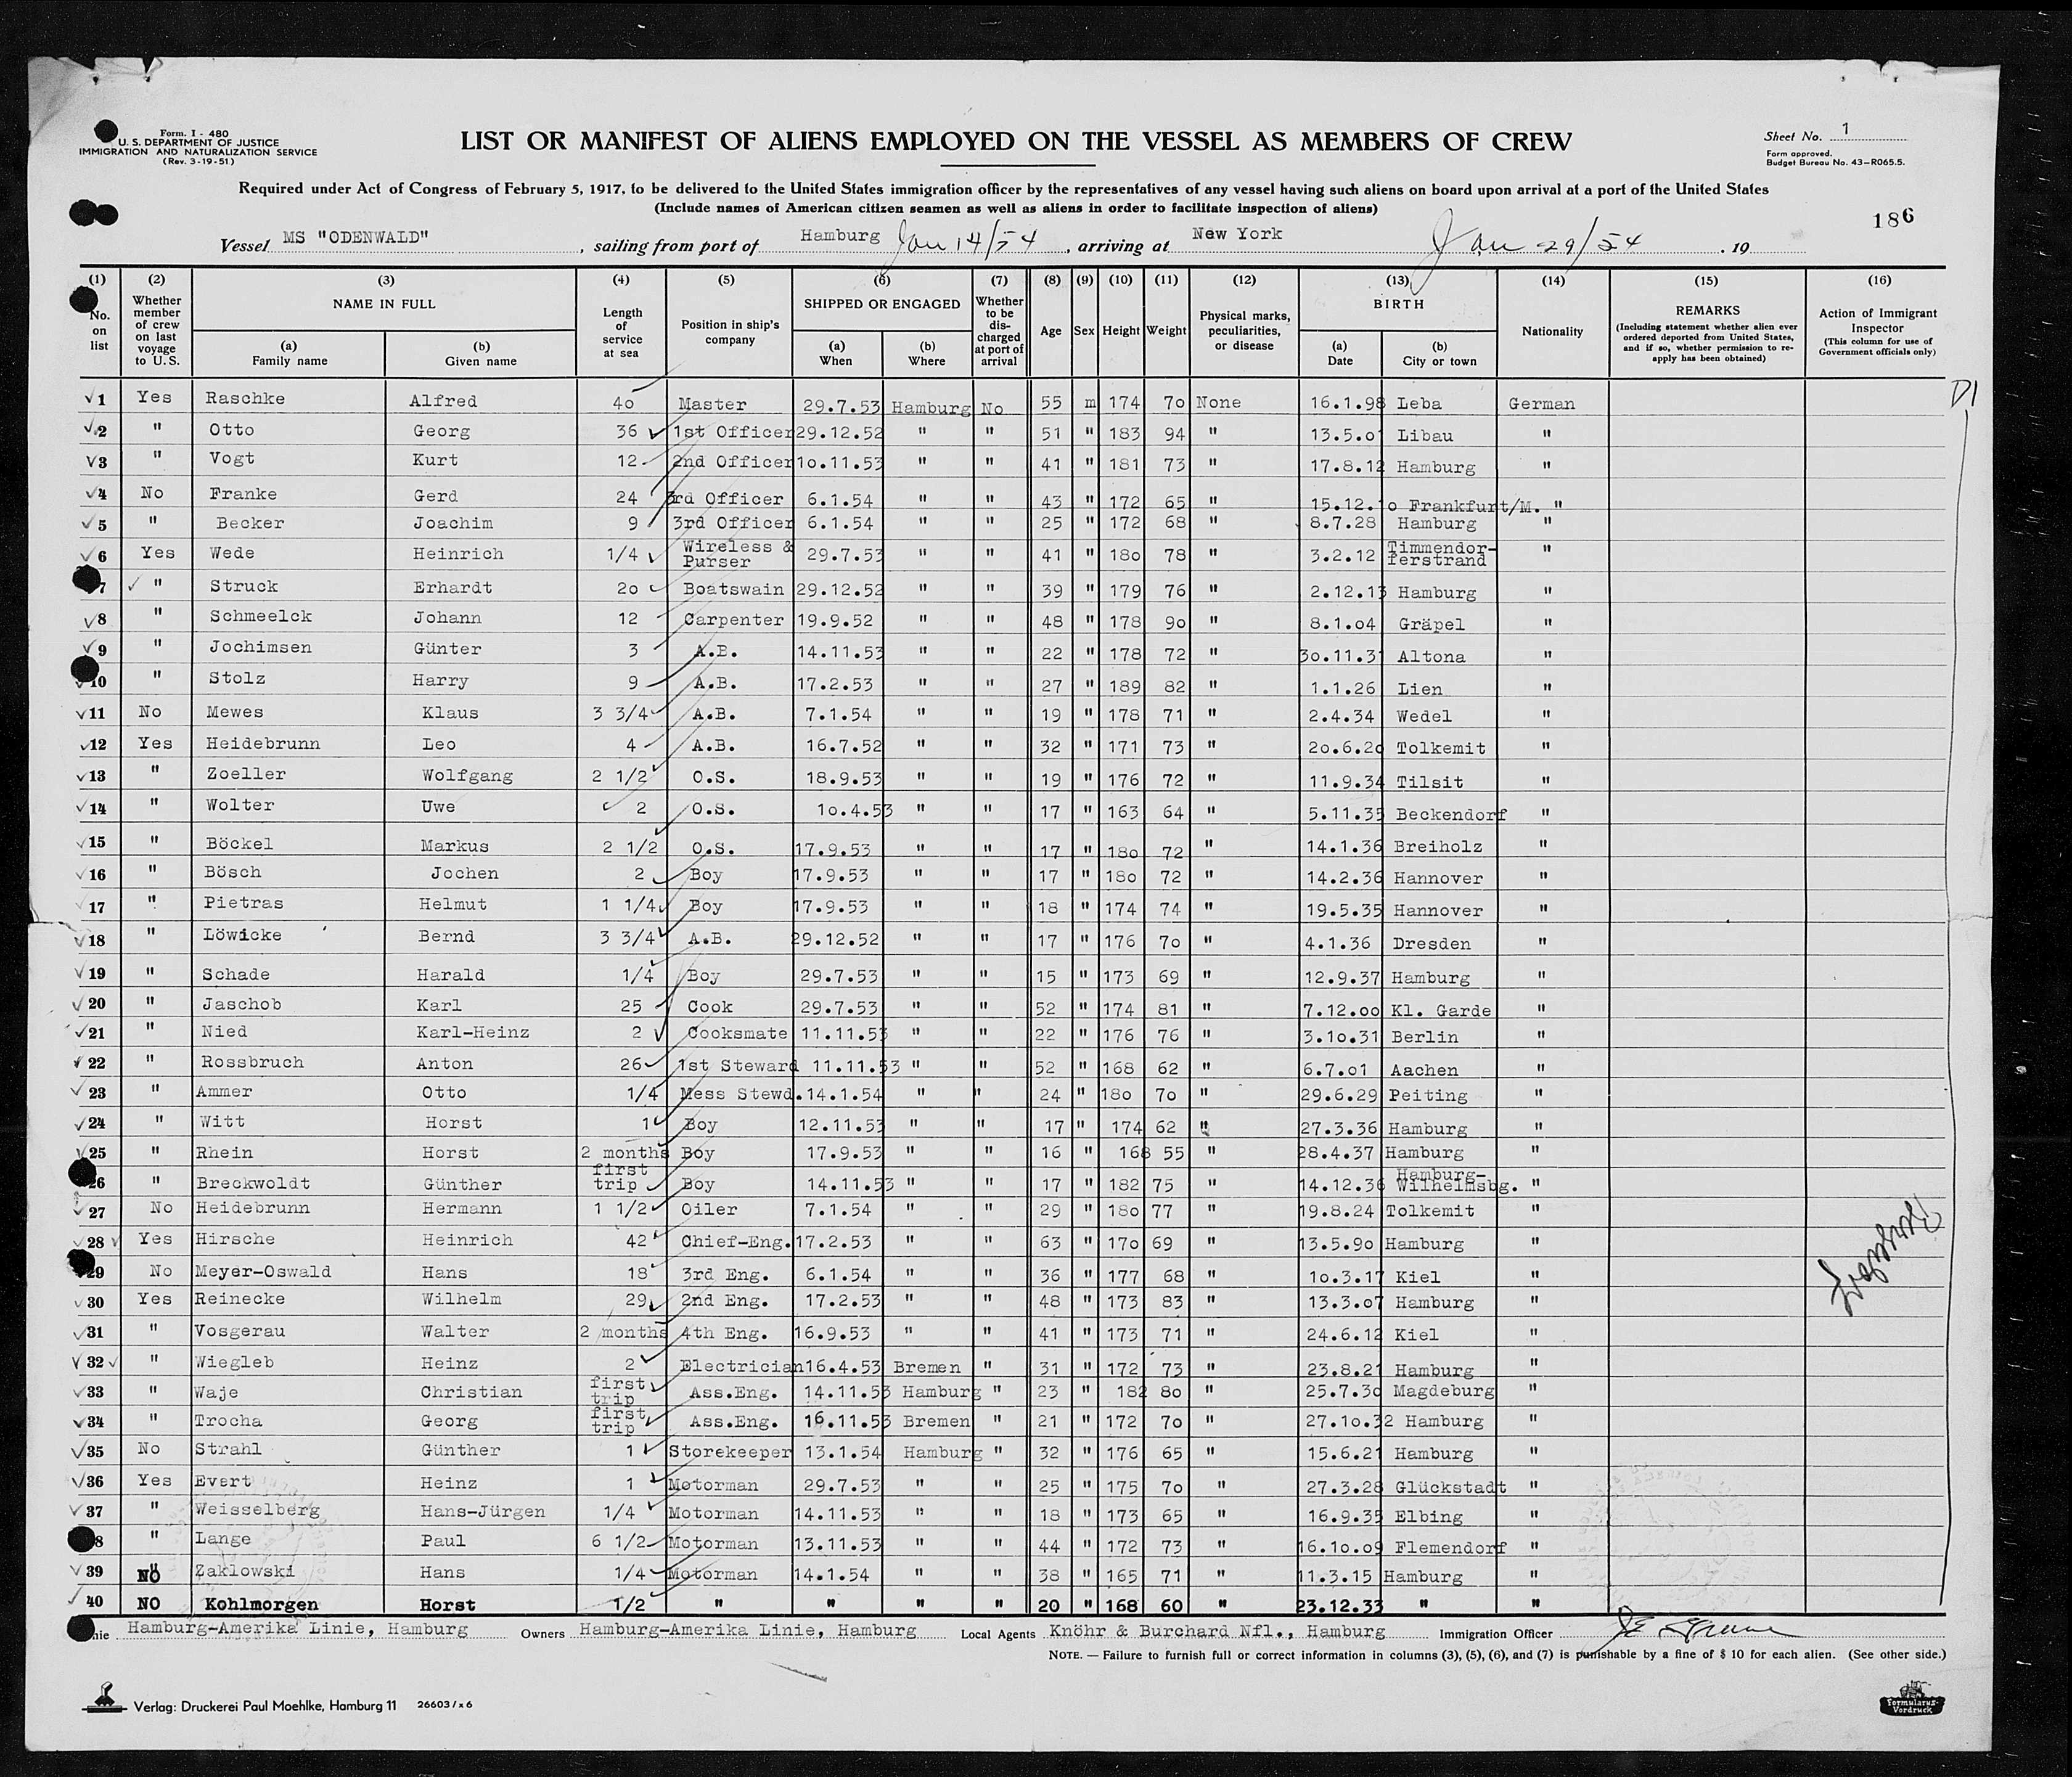 Form. I - 480
U. S. DEPARTMENT OF JUSTICE
IMMIGRATION AND NATURALIZATION SERVICE
(Rev. 3-19-51)
LIST OR MANIFEST OF ALIENS EMPLOYED ON THE VESSEL AS MEMBERS OF CREW
Sheet No. 1
Form approved.
Budget Bureau No. 43-R065.5.
Required under Act of Congress of February 5, 1917, to be delivered to the United States immigration officer by the representatives of any vessel having such aliens on board upon arrival at a port of the United States
(Include names of American citizen seamen as well as aliens in order to facilitate inspection of aliens)
186
Vessel MS "ODENWALD", sailing from port of Hamburg Jan 14/54, arriving at New York Jan 29/54. 19
(1) No. on list (2) Whether member of crew on last voyage to U.S. (3) NAME IN FULL (a) Family name (b) Given name (4) Length of service at sea (5) Position in ship's company (6) SHIPPED OR ENGAGED (a) When (b) Where (7) Whether to be discharged at port of arrival (8) Age (9) Sex (10) Height (11) Weight (12) Physical marks, peculiarities, or disease (13) BIRTH (a) Date (b) City or town (14) Nationality (15) REMARKS (Including statement whether alien ever ordered deported from United States, and if so, whether permission to re-apply has been obtained) (16) Action of Immigrant Inspector (This column for use of Government officials only)
1 Yes Raschke Alfred 40 Master 29.7.53 Hamburg No 55 m 174 70 None 16.1.98 Leba German
2 " Otto Georg 36 1st Officer 29.12.52 " " 51 " 183 94 " 13.5.01 Libau "
3 " Vogt Kurt 12 2nd Officer 10.11.53 " " 41 " 181 73 " 17.8.12 Hamburg "
4 No Franke Gerd 24 3rd Officer 6.1.54 " " 43 " 172 65 " 15.12.10 Frankfurt/M. "
5 " Becker Joachim 9 3rd Officer 6.1.54 " " 25 " 172 68 " 8.7.28 Hamburg "
6 Yes Wede Heinrich 1/4 Wireless & Purser 29.7.53 " " 41 " 180 78 " 3.2.12 Timmendor-ferstrand "
7 " Struck Erhardt 20 Boatswain 29.12.52 " " 39 " 179 76 " 2.12.13 Hamburg "
8 " Schmeelck Johann 12 Carpenter 19.9.52 " " 48 " 178 90 " 8.1.04 Gräpel "
9 " Jochimsen Günter 3 A.B. 14.11.53 " " 22 " 178 72 " 30.11.31 Altona "
10 " Stolz Harry 9 A.B. 17.2.53 " " 27 " 189 82 " 1.1.26 Lien "
11 No Mewes Klaus 3 3/4 A.B. 7.1.54 " " 19 " 178 71 " 2.4.34 Wedel "
12 Yes Heidebrunn Leo 4 A.B. 16.7.52 " " 32 " 171 73 " 20.6.20 Tolkemit "
13 " Zoeller Wolfgang 2 1/2 O.S. 18.9.53 " " 19 " 176 72 " 11.9.34 Tilsit "
14 " Wolter Uwe 2 O.S. 10.4.53 " " 17 " 163 64 " 5.11.35 Beckendorf "
15 " Böckel Markus 2 1/2 O.S. 17.9.53 " " 17 " 180 72 " 14.1.36 Breiholz "
16 " Bösch Jochen 2 Boy 17.9.53 " " 17 " 180 72 " 14.2.36 Hannover "
17 " Pietras Helmut 1 1/4 Boy 17.9.53 " " 18 " 174 74 " 19.5.35 Hannover "
18 " Löwicke Bernd 3 3/4 A.B. 29.12.52 " " 17 " 176 70 " 4.1.36 Dresden "
19 " Schade Harald 1/4 Boy 29.7.53 " " 15 " 173 69 " 12.9.37 Hamburg "
20 " Jaschob Karl 25 Cook 29.7.53 " " 52 " 174 81 " 7.12.00 Kl. Garde "
21 " Nied Karl-Heinz 2 Cooksmate 11.11.53 " " 22 " 176 76 " 3.10.31 Berlin "
22 " Rossbruch Anton 26 1st Steward 11.11.53 " " 52 " 168 62 " 6.7.01 Aachen "
23 " Ammer Otto 1/4 Mess Stewd. 14.1.54 " " 24 " 180 70 " 29.6.29 Peiting "
24 " Witt Horst 1 Boy 12.11.53 " " 17 " 174 62 " 27.3.36 Hamburg "
25 " Rhein Horst 2 months Boy 17.9.53 " " 16 " 168 55 " 28.4.37 Hamburg "
26 " Breckwoldt Günther first trip Boy 14.11.53 " " 17 " 182 75 " 14.12.36 Hamburg-Wilhelmsbg. "
27 No Heidebrunn Hermann 1 1/2 Oiler 7.1.54 " " 29 " 180 77 " 19.8.24 Tolkemit "
28 Yes Hirsche Heinrich 42 Chief-Eng. 17.2.53 " " 63 " 170 69 " 13.5.90 Hamburg "
29 No Meyer-Oswald Hans 18 3rd Eng. 6.1.54 " " 36 " 177 68 " 10.3.17 Kiel "
30 Yes Reinecke Wilhelm 29 2nd Eng. 17.2.53 " " 48 " 173 83 " 13.3.07 Hamburg "
31 " Vosgerau Walter 2 months 4th Eng. 16.9.53 " " 41 " 173 71 " 24.6.12 Kiel "
32 " Wiegleb Heinz 2 Electrician 16.4.53 Bremen " 31 " 172 73 " 23.8.21 Hamburg "
33 " Waje Christian first trip Ass.Eng. 14.11.53 Hamburg " 23 " 182 80 " 25.7.30 Magdeburg "
34 " Trocha Georg first trip Ass.Eng. 16.11.53 Bremen " 21 " 172 70 " 27.10.32 Hamburg "
35 No Strahl Günther 1 Storekeeper 13.1.54 Hamburg " 32 " 176 65 " 15.6.21 Hamburg "
36 Yes Evert Heinz 1 Motorman 29.7.53 " " 25 " 175 70 " 27.3.28 Glückstadt "
37 " Weisselberg Hans-Jürgen 1/4 Motorman 14.11.53 " " 18 " 173 65 " 16.9.35 Elbing "
38 " Lange Paul 6 1/2 Motorman 13.11.53 " " 44 " 172 73 " 16.10.09 Flemendorf "
39 NO Zaklowski Hans 1/4 Motorman 14.1.54 " " 38 " 165 71 " 11.3.15 Hamburg "
40 NO Kohlmorgen Horst 1/2 " " " " 20 " 168 60 " 23.12.33 " "
nie Hamburg-Amerika Linie, Hamburg Owners Hamburg-Amerika Linie, Hamburg Local Agents Knöhr & Burchard Nfl., Hamburg Immigration Officer
NOTE. — Failure to furnish full or correct information in columns (3), (5), (6), and (7) is punishable by a fine of $ 10 for each alien. (See other side.)
Verlag: Druckerei Paul Moehlke, Hamburg 11 26603/x6
Formularus-Vordruck